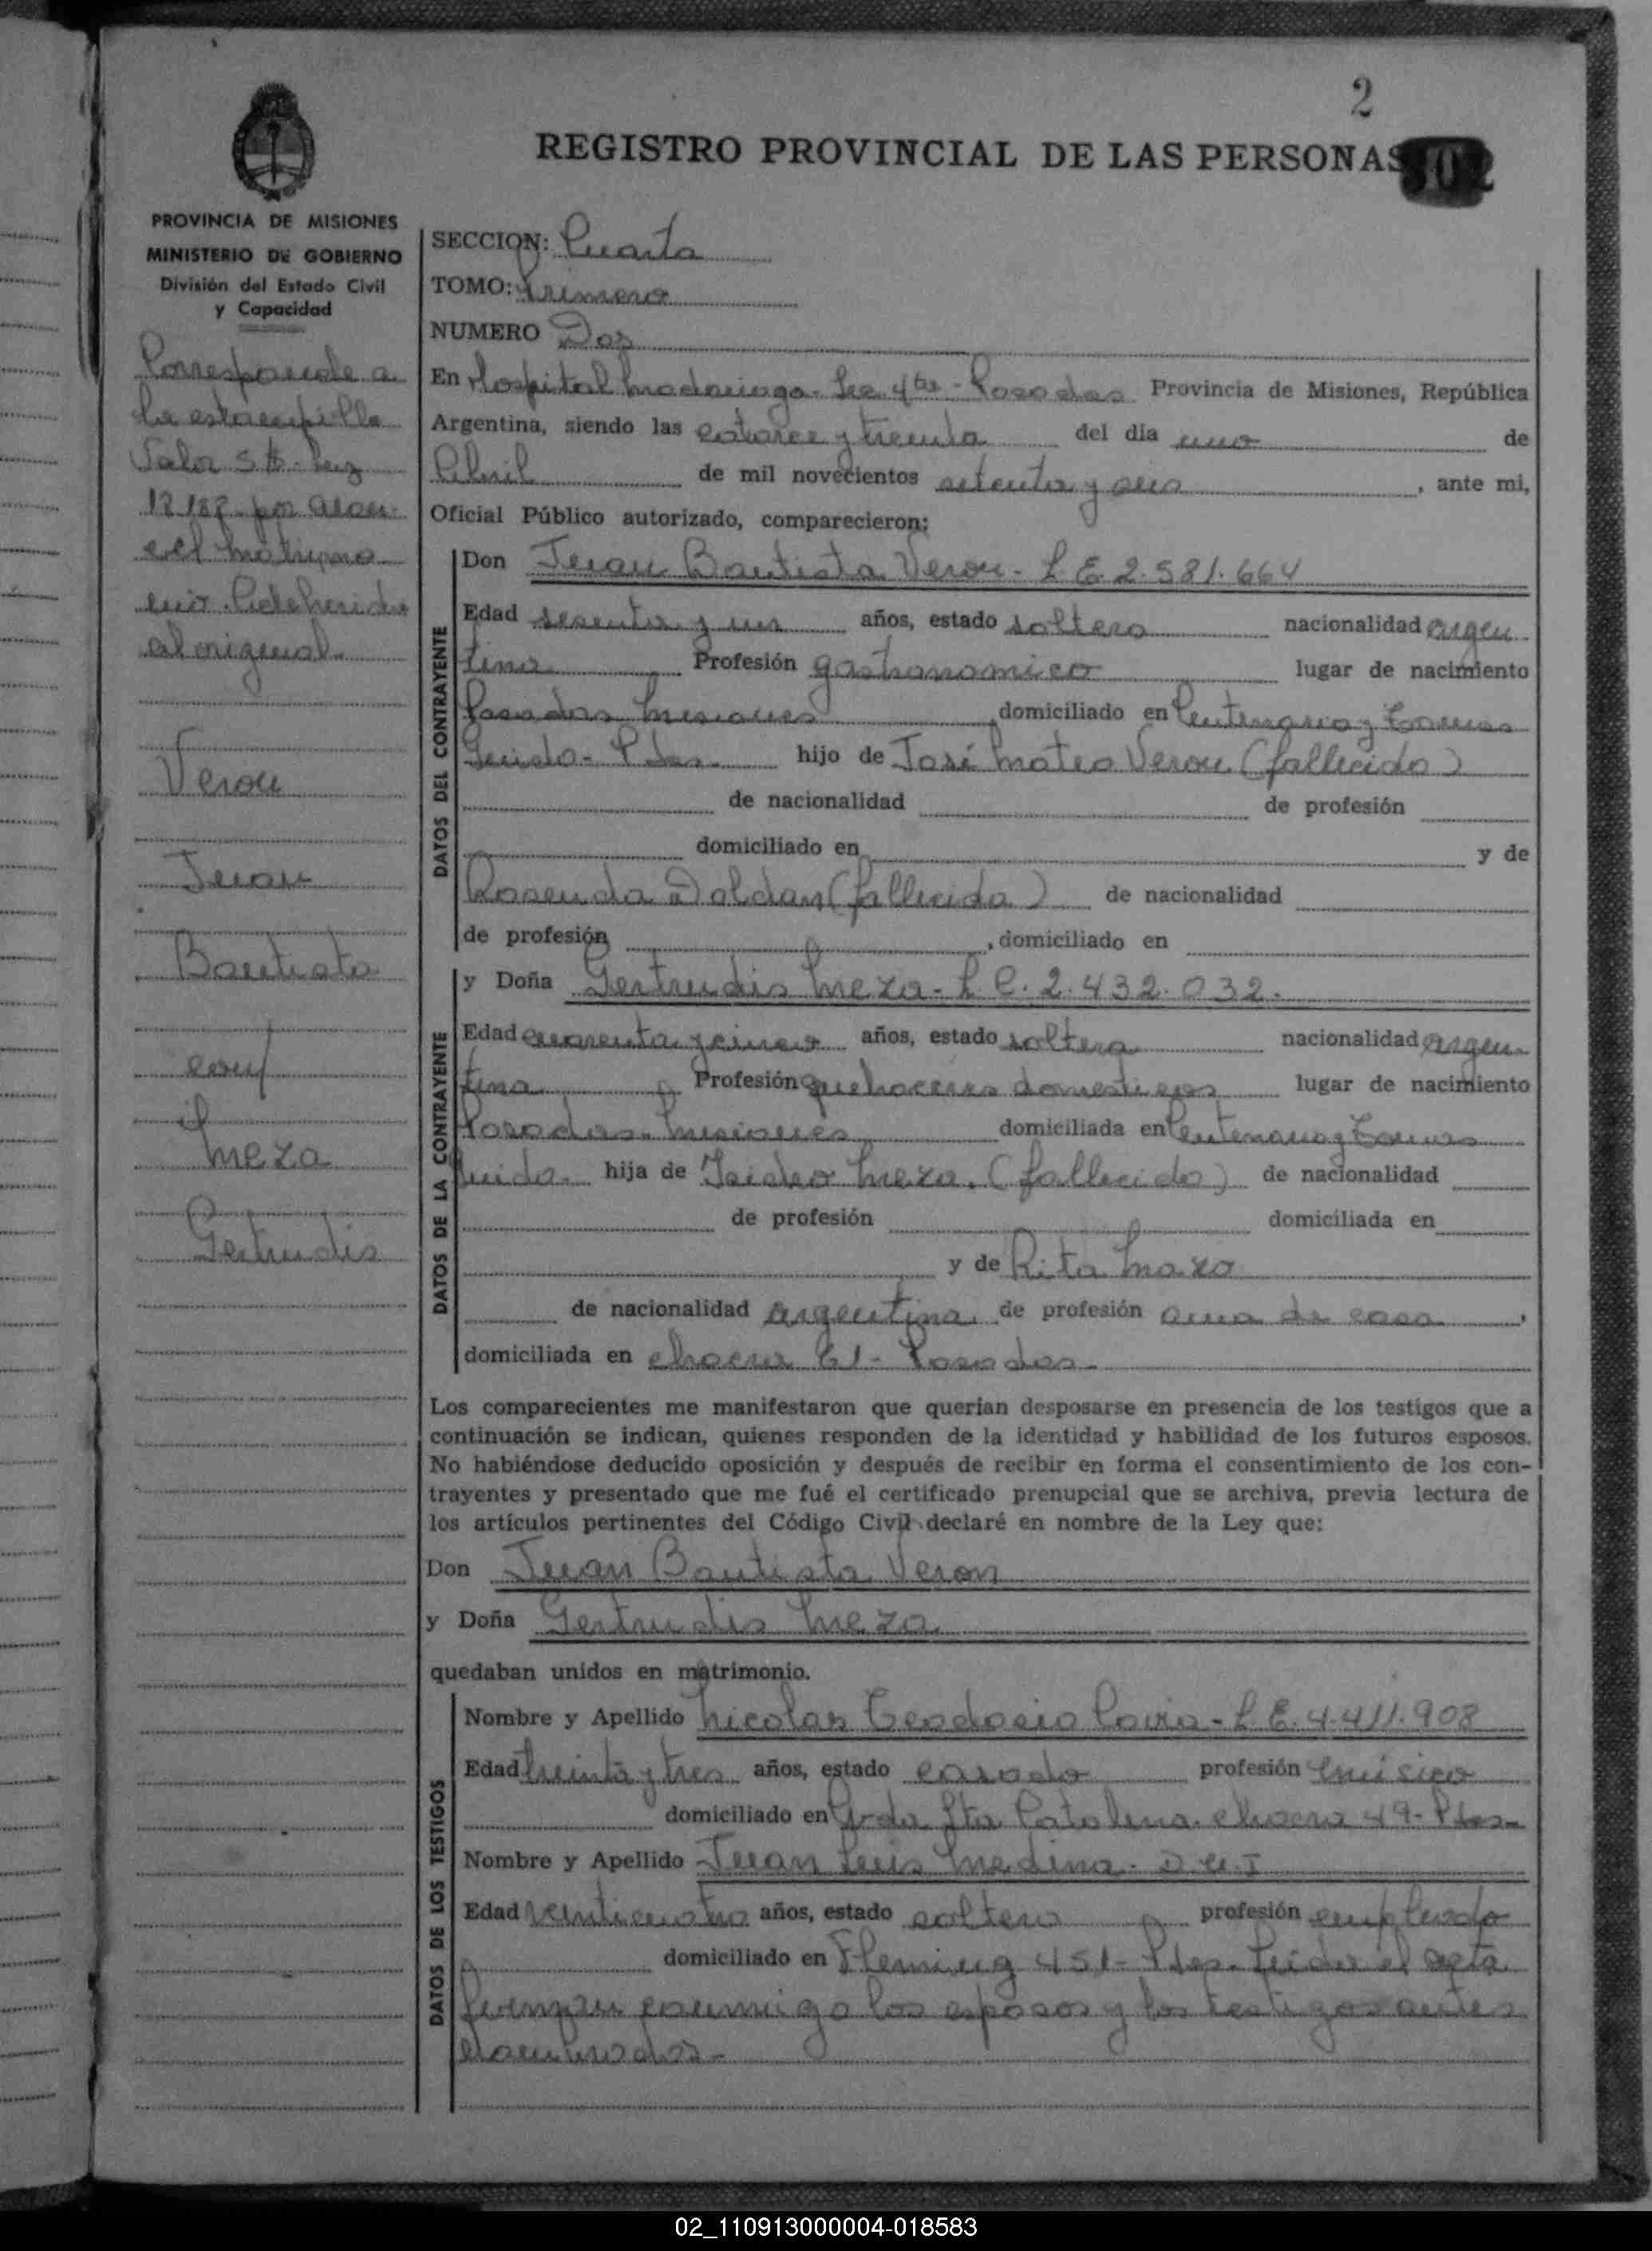 2
REGISTRO PROVINCIAL DE LAS PERSONAS
PROVINCIA DE MISIONES
MINISTERIO DE GOBIERNO
División del Estado Civil
y Capacidad
Corresponde a
la estampilla
Valor 5 $ - Ley
por aran
cel matrimo
nio. Adherida
al original.
Veron
Juan
Bautista
con
Meza
Gertrudis
SECCION: Cuarta
TOMO: Primero
NUMERO Dos
En Hospital Madariaga - Sec 4ta - Posadas Provincia de Misiones, República
Argentina, siendo las catorce y treinta del dia uno de
Abril de mil novecientos setenta y seis, ante mi,
Oficial Público autorizado, comparecieron:
DATOS DEL CONTRAYENTE
Don Juan Bautista Veron - L.E. 2.581.664
Edad sesenta y un años, estado soltero nacionalidad argen
tina Profesión gastronomico lugar de nacimiento
Posadas Misiones domiciliado en Centenario y Tomas
Guido - Pdas. hijo de José Mateo Veron (fallecido)
de nacionalidad de profesión
domiciliado en y de
Rosenda Doldan (fallecida) de nacionalidad
de profesión , domiciliado en
DATOS DE LA CONTRAYENTE
y Doña Gertrudis Meza - L.C. 2.432.032.
Edad cuarenta y cinco años, estado soltera nacionalidad argen
tina Profesión quehaceres domesticos lugar de nacimiento
Posadas - Misiones domiciliada en Centenario y Tomas
Guido. hija de Isidro Meza. (fallecido) de nacionalidad
de profesión domiciliada en
y de Rita Mazo
de nacionalidad argentina de profesión ama de casa ,
domiciliada en chacra 61 - Posadas -
Los comparecientes me manifestaron que querían desposarse en presencia de los testigos que a
continuación se indican, quienes responden de la identidad y habilidad de los futuros esposos.
No habiéndose deducido oposición y después de recibir en forma el consentimiento de los con-
trayentes y presentado que me fué el certificado prenupcial que se archiva, previa lectura de
los artículos pertinentes del Código Civil declaré en nombre de la Ley que:
Don Juan Bautista Veron
y Doña Gertrudis Meza
quedaban unidos en matrimonio.
DATOS DE LOS TESTIGOS
Nombre y Apellido Nicolas Teodocio - L.E. 4.411.908
Edad treinta y tres años, estado casado profesión músico
domiciliado en Avda Sta Catalina chacra 49 - Pdas -
Nombre y Apellido Juan Luis Medina - D.U.I
Edad veinticuatro años, estado soltero profesión empleado
domiciliado en Fleming 451 - Pdas. Leida el acta
firman conmigo los esposos y los testigos antes
nombrados -
02_110913000004-018583